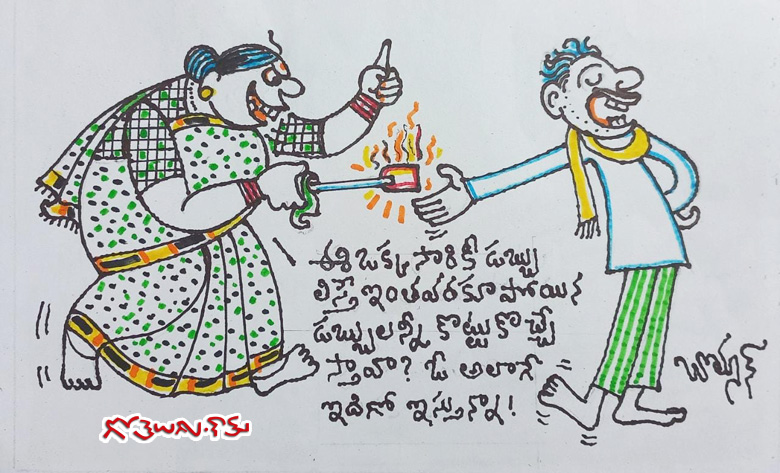 ఈ ఒక్క సారికీ డబ్బు
లిస్తే ఇంతవరకూ పోయిన
డబ్బులన్నీ కొట్టుకొచ్చే
స్తావా? ఓ అలానే
ఇదిగో ఇస్తున్నా!
గోతెలుగు.కామ్